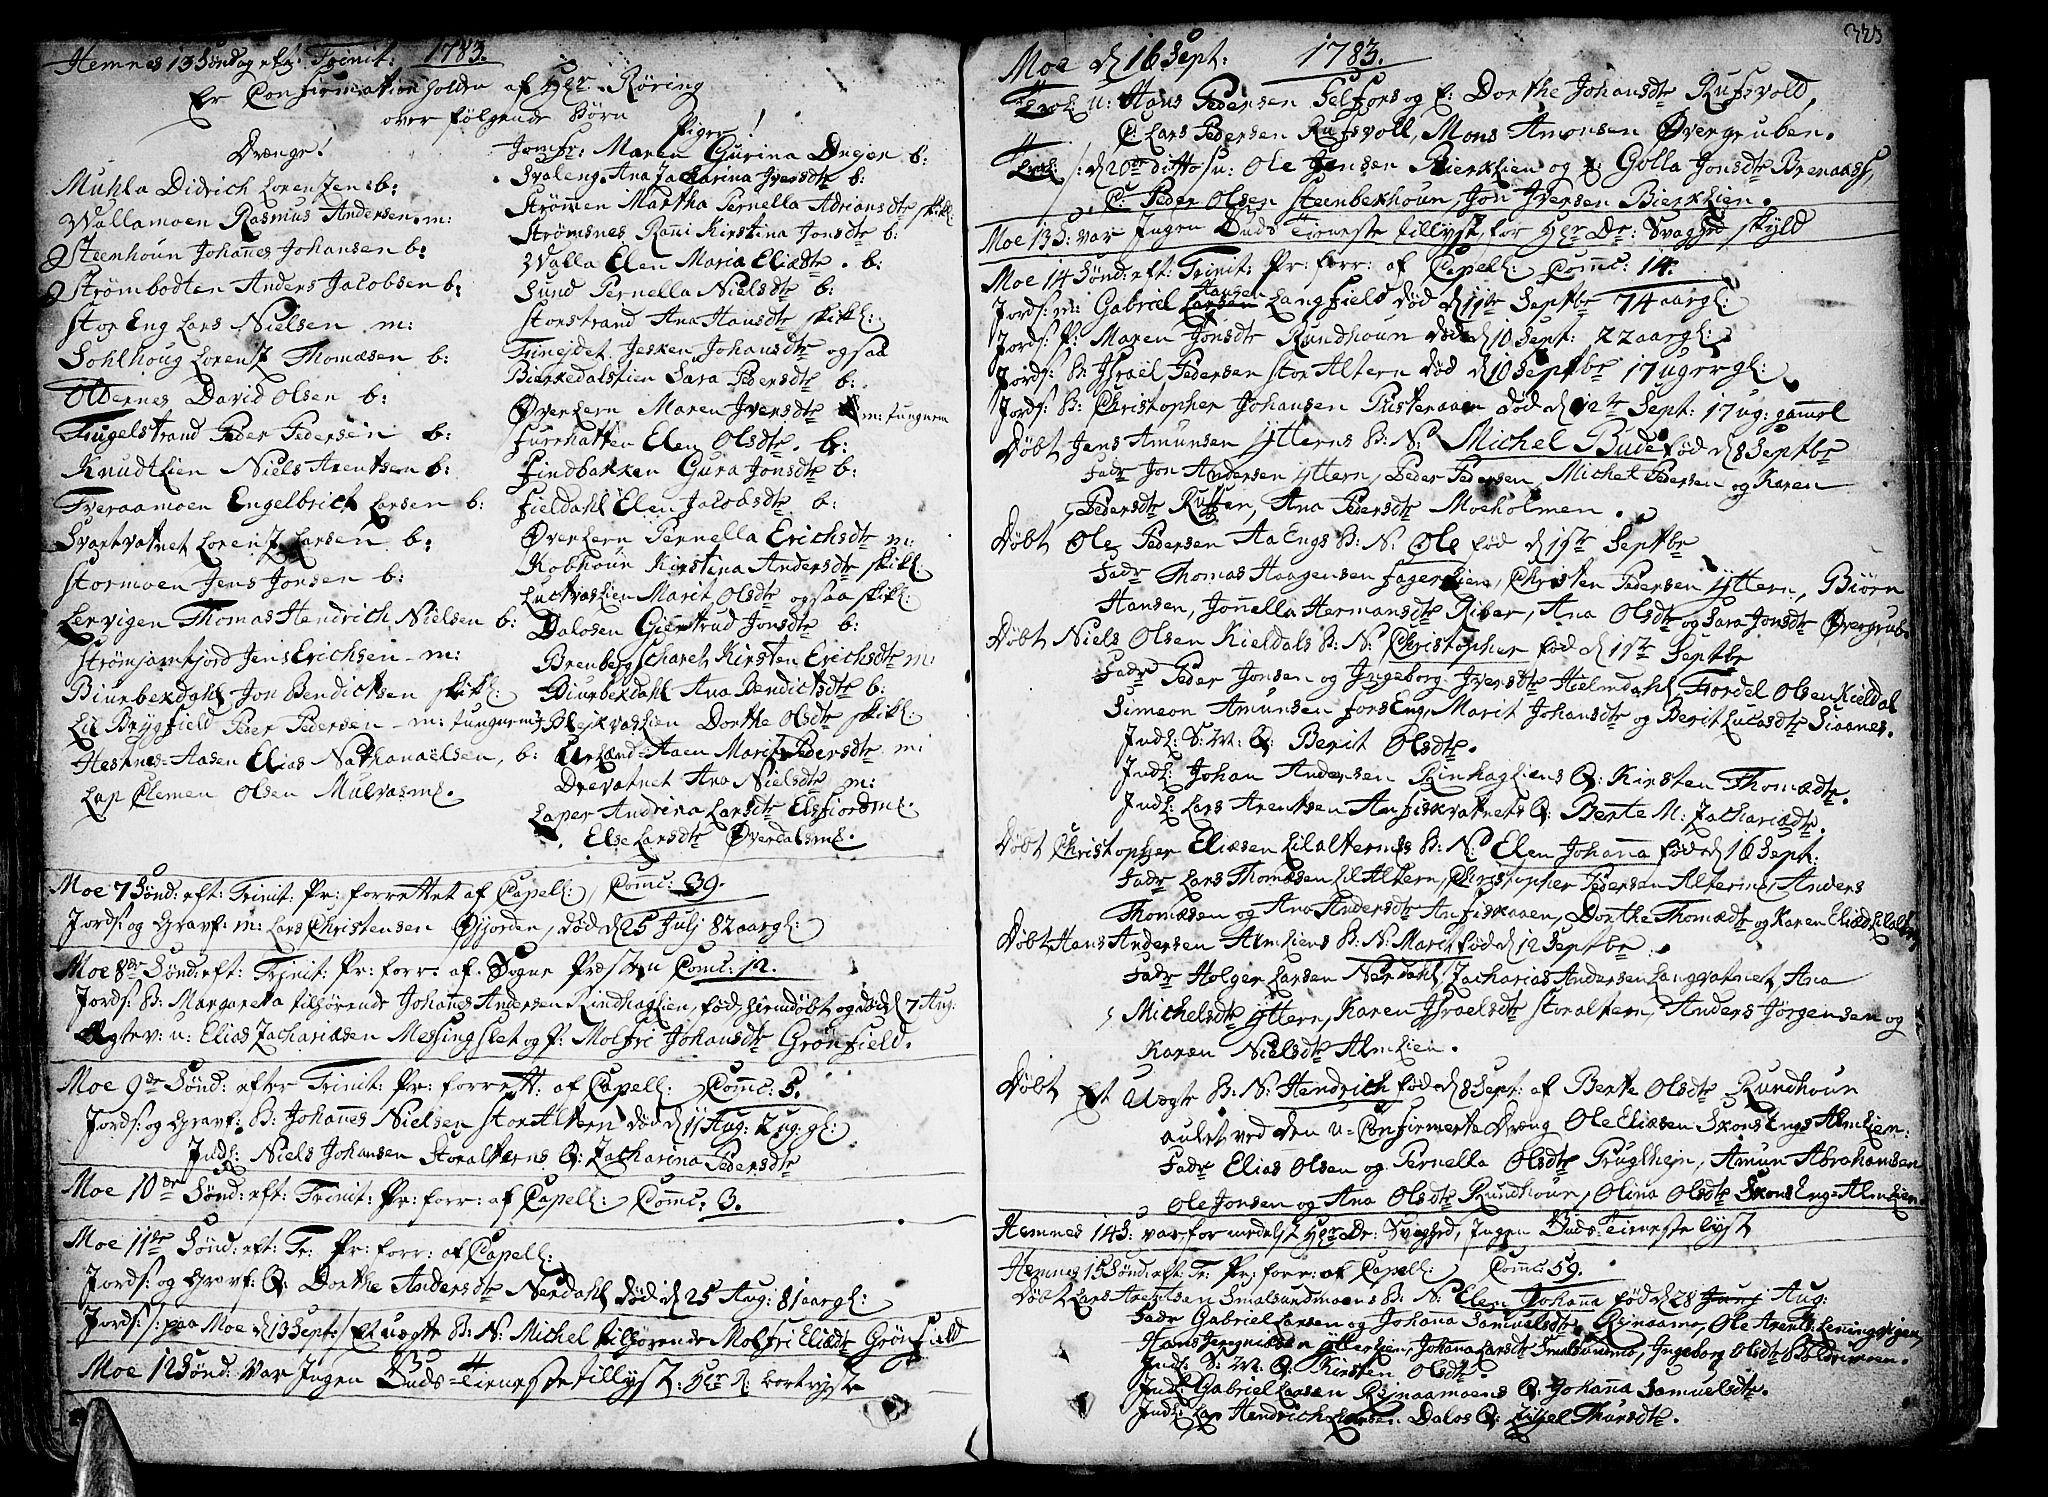 Hemnes 13 Søndag eft: Trinit: 1783.
Er Confirmation holden af Hr. Röring
over følgende Börn
Drænge!
Muhla Didrich Lorentzen b:
Vallamoen Rasmus Andersen. m:
Steenhoun Johañes Johansen b:
Strømbodten Anders Jacobsen b:
Stor Eng Lars Nielsen m:
Sohlhoug Lorentz Thomæsen b:
Oldernes David Olsen b:
Fugelstrand Peder Pedersen b:
Knudtlien Niels Arentsen b:
Tveraamoen Engelbrict Larsen b:
Svartvatnet Lorentz Larsen b:
Stormoen Jens Jonsen b:
Lervigen Thomas Hendrich Nielsen b:
Strømjamfjord Jens Erichsen m:
Biurbekdahl Jon Bendictsen skikl:
Lil Brygfield Peder Pedersen m: tungnem
Hestnes-Aasen Elias Nathanaëlsen, b:
Lap Clemen Olsen Mulvasml.
Piger!
Jomfr: Maren Gurina Drejer b:
Svaleng. Ana Zacharina Iversdtr b:
Strømen Martha Pernella Adriansdtr skikl:
Strømsnes Rañi Kirstina Jonsdtr b:
Valla Elen Maria Eliædtr. b:
Sund Pernella Nielsdtr b:
Storstrand Ana Hansdtr skikl:
Trinejdet Jesken Johansdtr ogsaa
Bierkedalslien Sara Pedersdtr b:
Øverlern Maren Iversdtr m: tungnem
Furrhatten Elen Olsdtr. b:
Findbakken Gura Jonsdtr b:
Fieldahl Elen Jacobsdtr b:
Øverlern Pernella Erichsdtr m:
Kobhoun Kirstina Andersdtr skikl:
Luctvaslien Marit Olsdtr ogsaa skikl:
Dalosen Giertrud Jonsdtr b:
Brenbergscharet Kirsten Erichsdtr m:
Biurbekdahl Ana Bendictsdtr b:
Blejkvaslien Dorthe Olsdtr skikl:
Urland-Aaen Marit Pedersdtr m:
Drevatnet Ana Nielsdtr m:
Laper Andrina Larsdtr Elsfiordml.
Else Larsdtr Øverdalsml.
Moe 7 Sønd: eft: Trinit: Pr: forrettet af Capell: Comc: 39.
Jords: og Gravf: m: Lars Christensen Øyjorden, død d 25 Julj 82 aar gl:
Moe 8de Sønd: eft: Trinit: Pr: forr: af Sogne Præsten Comc: 12.
Jords: B: Margareta tilhørende Johañes Andersen Rindhaglien, fød, hiemdøbt og død d 7 Aug:
Ægtev: u: Elias Zachariæsen Messingslet og P: Molfri Johansdtr Grønfield.
Moe 9de Sønd: efter Trinit: Pr: forrett: af Capell: Comc: 5.
Jords: og Gravf: B: Johañes Nielsen Stor Altern død d 11 Aug: 2 ug: gl:
Indl: Niels Johansen Storalterns Q: Zacharina Pedersdtr
Moe 10de Sønd: eft: Trinit: Pr: forr: af Capell: Comc: 3.
Moe 11te Sønd: eft: Tr: Pr: forr: af Capell:
Jords: og Gravf: Q: Dorthe Andersdtr Nerdahl død d 25 Aug: 81 aar gl:
Jords: /: paa Moe d 13 Sept:/ Et uægte B: N: Michel tilhørende Molfri Eliædtr Grønfield
Moe 12 Sønd: Var Ingen Guds-Tieneste tillyst: Hr P: bortrejste
323
Moe d 16 Sept: 1783.
Trol: u: Hans Pedersen Selfors og P: Dorthe Johansdtr Rufsvold,
C: Lars Pedersen Rufsvoll, Mons Amonsen Øvergruben.
Trol: /: d 20de ditto/ u: Ole Jensen Bierklien og P: Golla Jonsdtr Brenaas,
C: Peder Olsen Steenbekhoun, Jon Iversen Bierklien.
Moe 13 S: var Ingen Guds Tieneste tillyst for Hr Dr: Svaghed skyld
Moe 14 Sønd: eft: Trinit: Pr: forr: af Capell: Comc: 14.
Jords: m: Gabriel Hansen Langfield død d 11te Septbr 74 aar gl:
Jords: P: Maren Jonsdtr Rundhoun død d 10 Sept: 22 aar gl:
Jords: B: Israel Pedersen Stor Altern død d 10 Septbr 17 uger gl:
Jords: B: Christopher Johansen Tusteraaen død d 12te Sept: 17 ug: gamel
Døbt Jens Amunsen Ytterns B: N: Michel Bude fød d 8 Septbr
Fadr Jon Andersen Yttern, Peder Pedersen, Michel Pedersen og Karen
Pedersdtr Ruffen, Ana Pedersdtr Moeholmen.
Døbt Ole Pedersen Aa Engs B: N: Ole fød d 19de Septbr
Fadr Thomas Haagensen Fagerlien, Christen Pedersen Yttern, Biörn
Hansen, Joñella Hermansdtr Riber, Ana Olsdtr og Sara Jonsdtr Øvergrub.
Døbt Niels Olsen Kieldals B: N: Christopher fød d 17de Septbr
Fadr Peder Jonsen og Ingeborg Iversdtr Hielmdahl, Tordel Olsen Kieldal
Simeon Amunsen Fors Eng, Marit Johansdtr og Berit Lucasdtr Sionnes.
Indl: S: M: Q: Berit Olsdtr.
Indl: Johan Andersen Rinhagliens Q: Kirsten Thomædtr.
Indl: Lars Arentsen Anfiskvatnets Q: Bente M: Zachariædtr.
Døbt Christopher Eliæsen Lilalterns B: N: Elen Johaña fød d 16 Sept:
Fadr Lars Thomæsen Lil Altern, Christopher Pedersen Altern, Anders
Thomæsen og Ana Andersdtr Anfiskaaen, Dorthe Thomædtr og Karen Eliædtr Lilaltern
Døbt Hans Andersen Almliens B: N: Marit fød d 12 Septbr
Fadr Holger Larsen Nerdahl, Zacharias Andersen Langvatnet, Ana
Michelsdtr Yttern, Karen Israelsdtr Storaltern, Anders Jørgensen og
Karen Nielsdtr Almlien.
Døbt Et Uægte B: N: Hendrich fød d 8 Sept: af Berte Olsdtr Rundhoun
aulet ved den u-Confirmerte Dræng Ole Eliæsen Skons Engs Almlien:
Fadr Elias Olsen og Pernella Olsdtr Prughejn, Amun Abrahamsen
Ole Jonsen og Ana Olsdtr Rundhoun, Olina Olsdtr Skons Eng-Almlien
Hemnes 14 S: var formedelst Hr Dr: Svaghed, Ingen Guds-Tieneste lyst
Hemnes 15 Sønd: eft: Tr: Pr: forr: af Capell: Comc: 59.
Døbt Lars Arentsen Smalsundmoens B: N: Elen Johaña fød d 28 Junj Aug:
Fadr Gabriel Larsen og Johaña Samuelsdtr Rejnaamo, Ole Arents: Leningvigen,
Hans Jørgensen Ytterlien, Johaña Larsdtr Smalsundmo, Ingeborg Olsdtr Boldermoen.
Indl: S: M: Q: Kirsten Olsdtr.
Indl: Gabriel Larsen Rejnaamoens Q: Johaña Samuelsdtr.
Indl: Lap Hendrich Larsen Dalos Q: Zitzel Thursdtr.